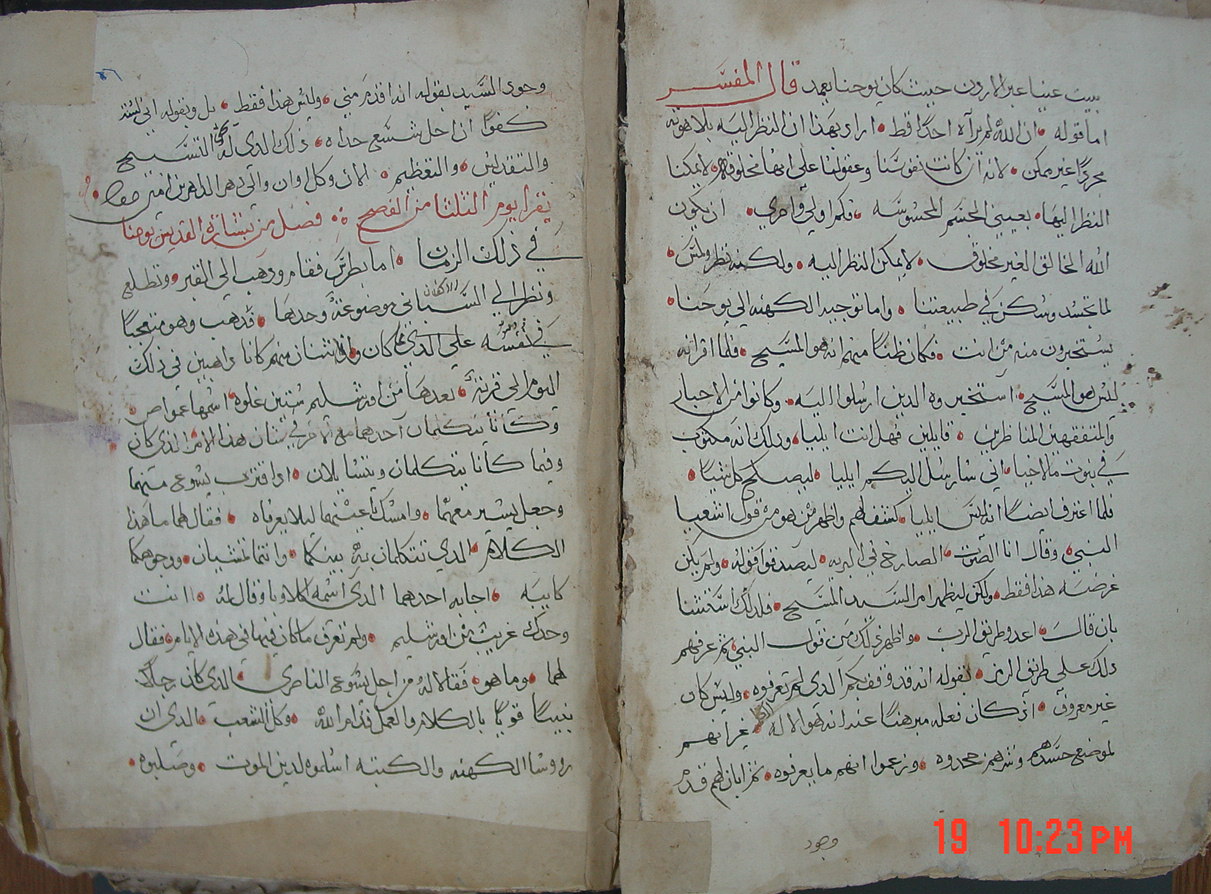 بيت عنيا عبر الاردن حيث كان يوحنا يعمد قال المفسر
اما قوله ان الله لم يراه احدا قط اراد بهذا ان النظر اليه بلاهوته
مجردا غير ممكن لانه ان كانت نفوسنا وعقولنا علي انها مخلوقه لا يمكنا
النظر اليها بعيني الجسم المحسوسه فكم اولي واحري ان يكون
الله الخالق الغير مخلوق لا يمكن النظر اليه ولكنه نظر ولمس
لما تجسد وسكن في طبيعتنا واما توجيه الكهنه الي يوحنا
يستخبرون منه من انت فكان ظنا منهم انه هو المسيح فلما اقر انه
ليس هو المسيح استخبروه الذين ارسلوا اليه وكانوا من الاحبار
والمتفقهين المناظرين قايلين فهل انت ايليا وذلك انه مكتوب
في نبوت ملاخيا اني سارسل اليكم ايليا ليصلح كل شيا
فلما اعترف ايضا انه ليس ايليا كشف لهم واظهر من هو من قول اشعيا
النبي وقال انا الصوت الصارخ في البريه ليصدقوا قوله ولم يكن
غرضه هذا فقط ولكن ليظهر امر السيد المسيح فلذلك استثنا
بان قال اعدو طريق الرب واظهر ذلك من قول النبي ثم عرفهم
ذلك علي طريق الرمز بقوله انه قد وقف بينكم الذي لستم تعرفوه وليس كان
غير معروف اذ كان فعله مبرهنا عنه انه هو الاله غير انهم
لموضع حسدهم وشرهم جحدوه وزعموا انهم ما يعرفوه ثم ابان لهم قدم
وجود
وجود السيد بقوله انه اقدم مني وليس هذا فقط بل وبقوله اني لست
كفوا ان احل شسع حداه ذلك الدي له التسبيح
والتقديس والتعظيم الان وكل اوان والي دهر الداهرين امين
يقرا يوم الثلثا من الفصح فصل من بشارة القديس لوقا
في ذلك الزمان اما بطرس فقام وذهب الي القبر وتطلع
ونظر الي السباني الاكفان موضوعة وحدها فذهب وهو متعجبا
في نفسه علي الدي كان واثنان منهم كانا ذاهبين في ذلك
اليوم الي قرية بعدها من اورشليم ستين غلوه اسمها عمواص
وكانا يتكلمان احدهما مع الاخر بسان هذا الامر الذي كان
وفيما كانا يتكلمان ويتسايلان اذا اقترب يسوع منهما
وجعل يسير معهما وامسك اعينهما ليلا يعرفاه فقال لهما ما هذا
الكلام الذي تتكلمان به بينكما وانتما تمشيان ووجوهكما
كايبه اجابه احدهما الذي اسمه كلاوبا وقال له انت
وحدك غريب من اورشليم ولم تعرف ما كان فيها في هذه الايام فقال
لهما وما هو فقالا له من اجل يسوع الناصري الذي كان رجلا
نبيا قويا بالكلام والعمل قدام الله وكل الشعب الذي ان
روسا الكهنه والكتبه اسلموه لدين الموت وصلبوه
19 10:23 PM